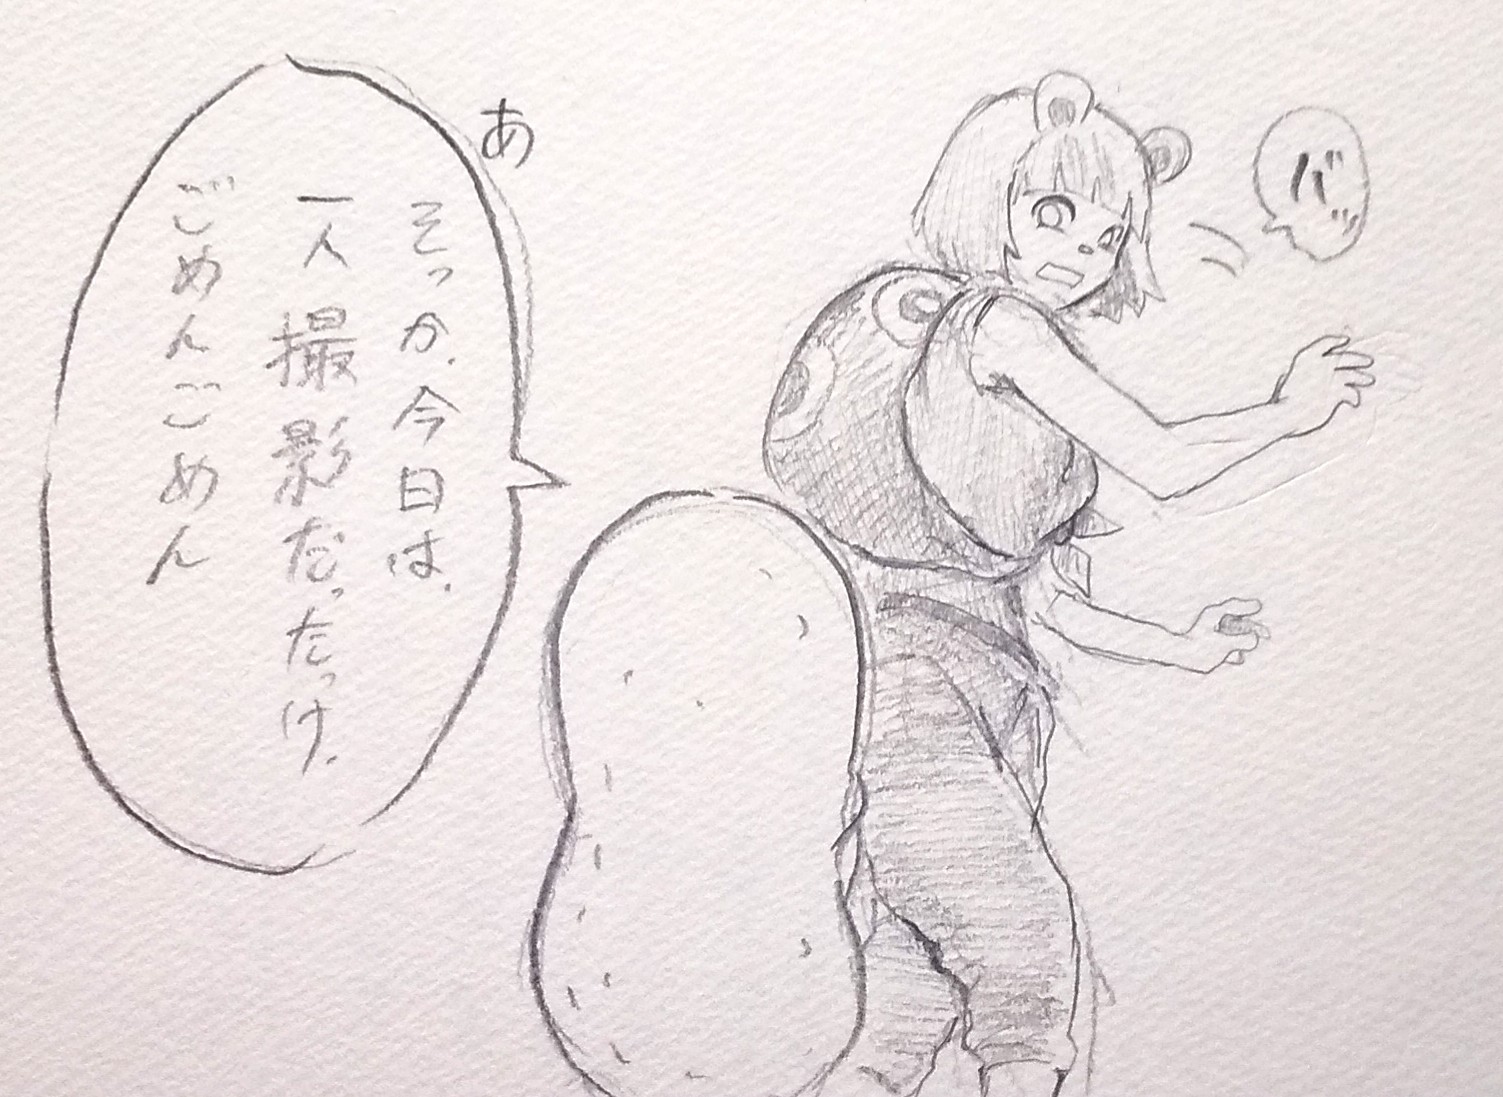 バッ
あ
そっか、今日は、
一人撮影だったっけ、
ごめんごめん